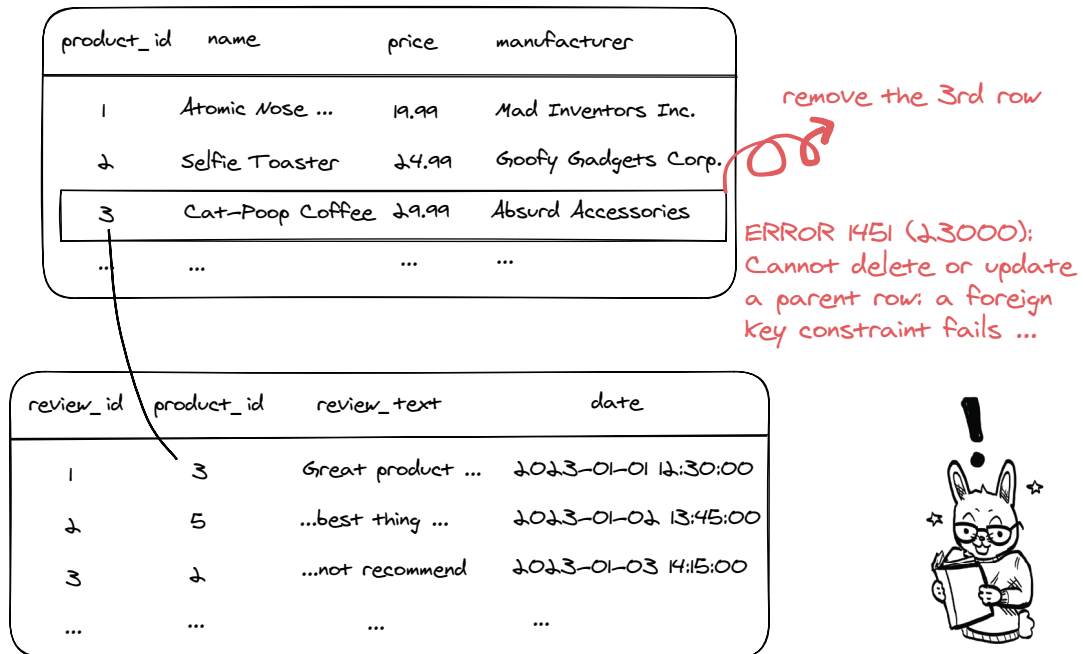 product_id name price manufacturer
1 Atomic Nose ... 19.99 Mad Inventors Inc.
2 Selfie Toaster 24.99 Goofy Gadgets Corp.
3 Cat-Poop Coffee 29.99 Absurd Accessories
... ... ... ...
remove the 3rd row
ERROR 1451 (23000):
Cannot delete or update
a parent row: a foreign
key constraint fails ...
review_id product_id review_text date
1 3 Great product ... 2023-01-01 12:30:00
2 5 ...best thing ... 2023-01-02 13:45:00
3 2 ...not recommend 2023-01-03 14:15:00
... ... ... ...
!